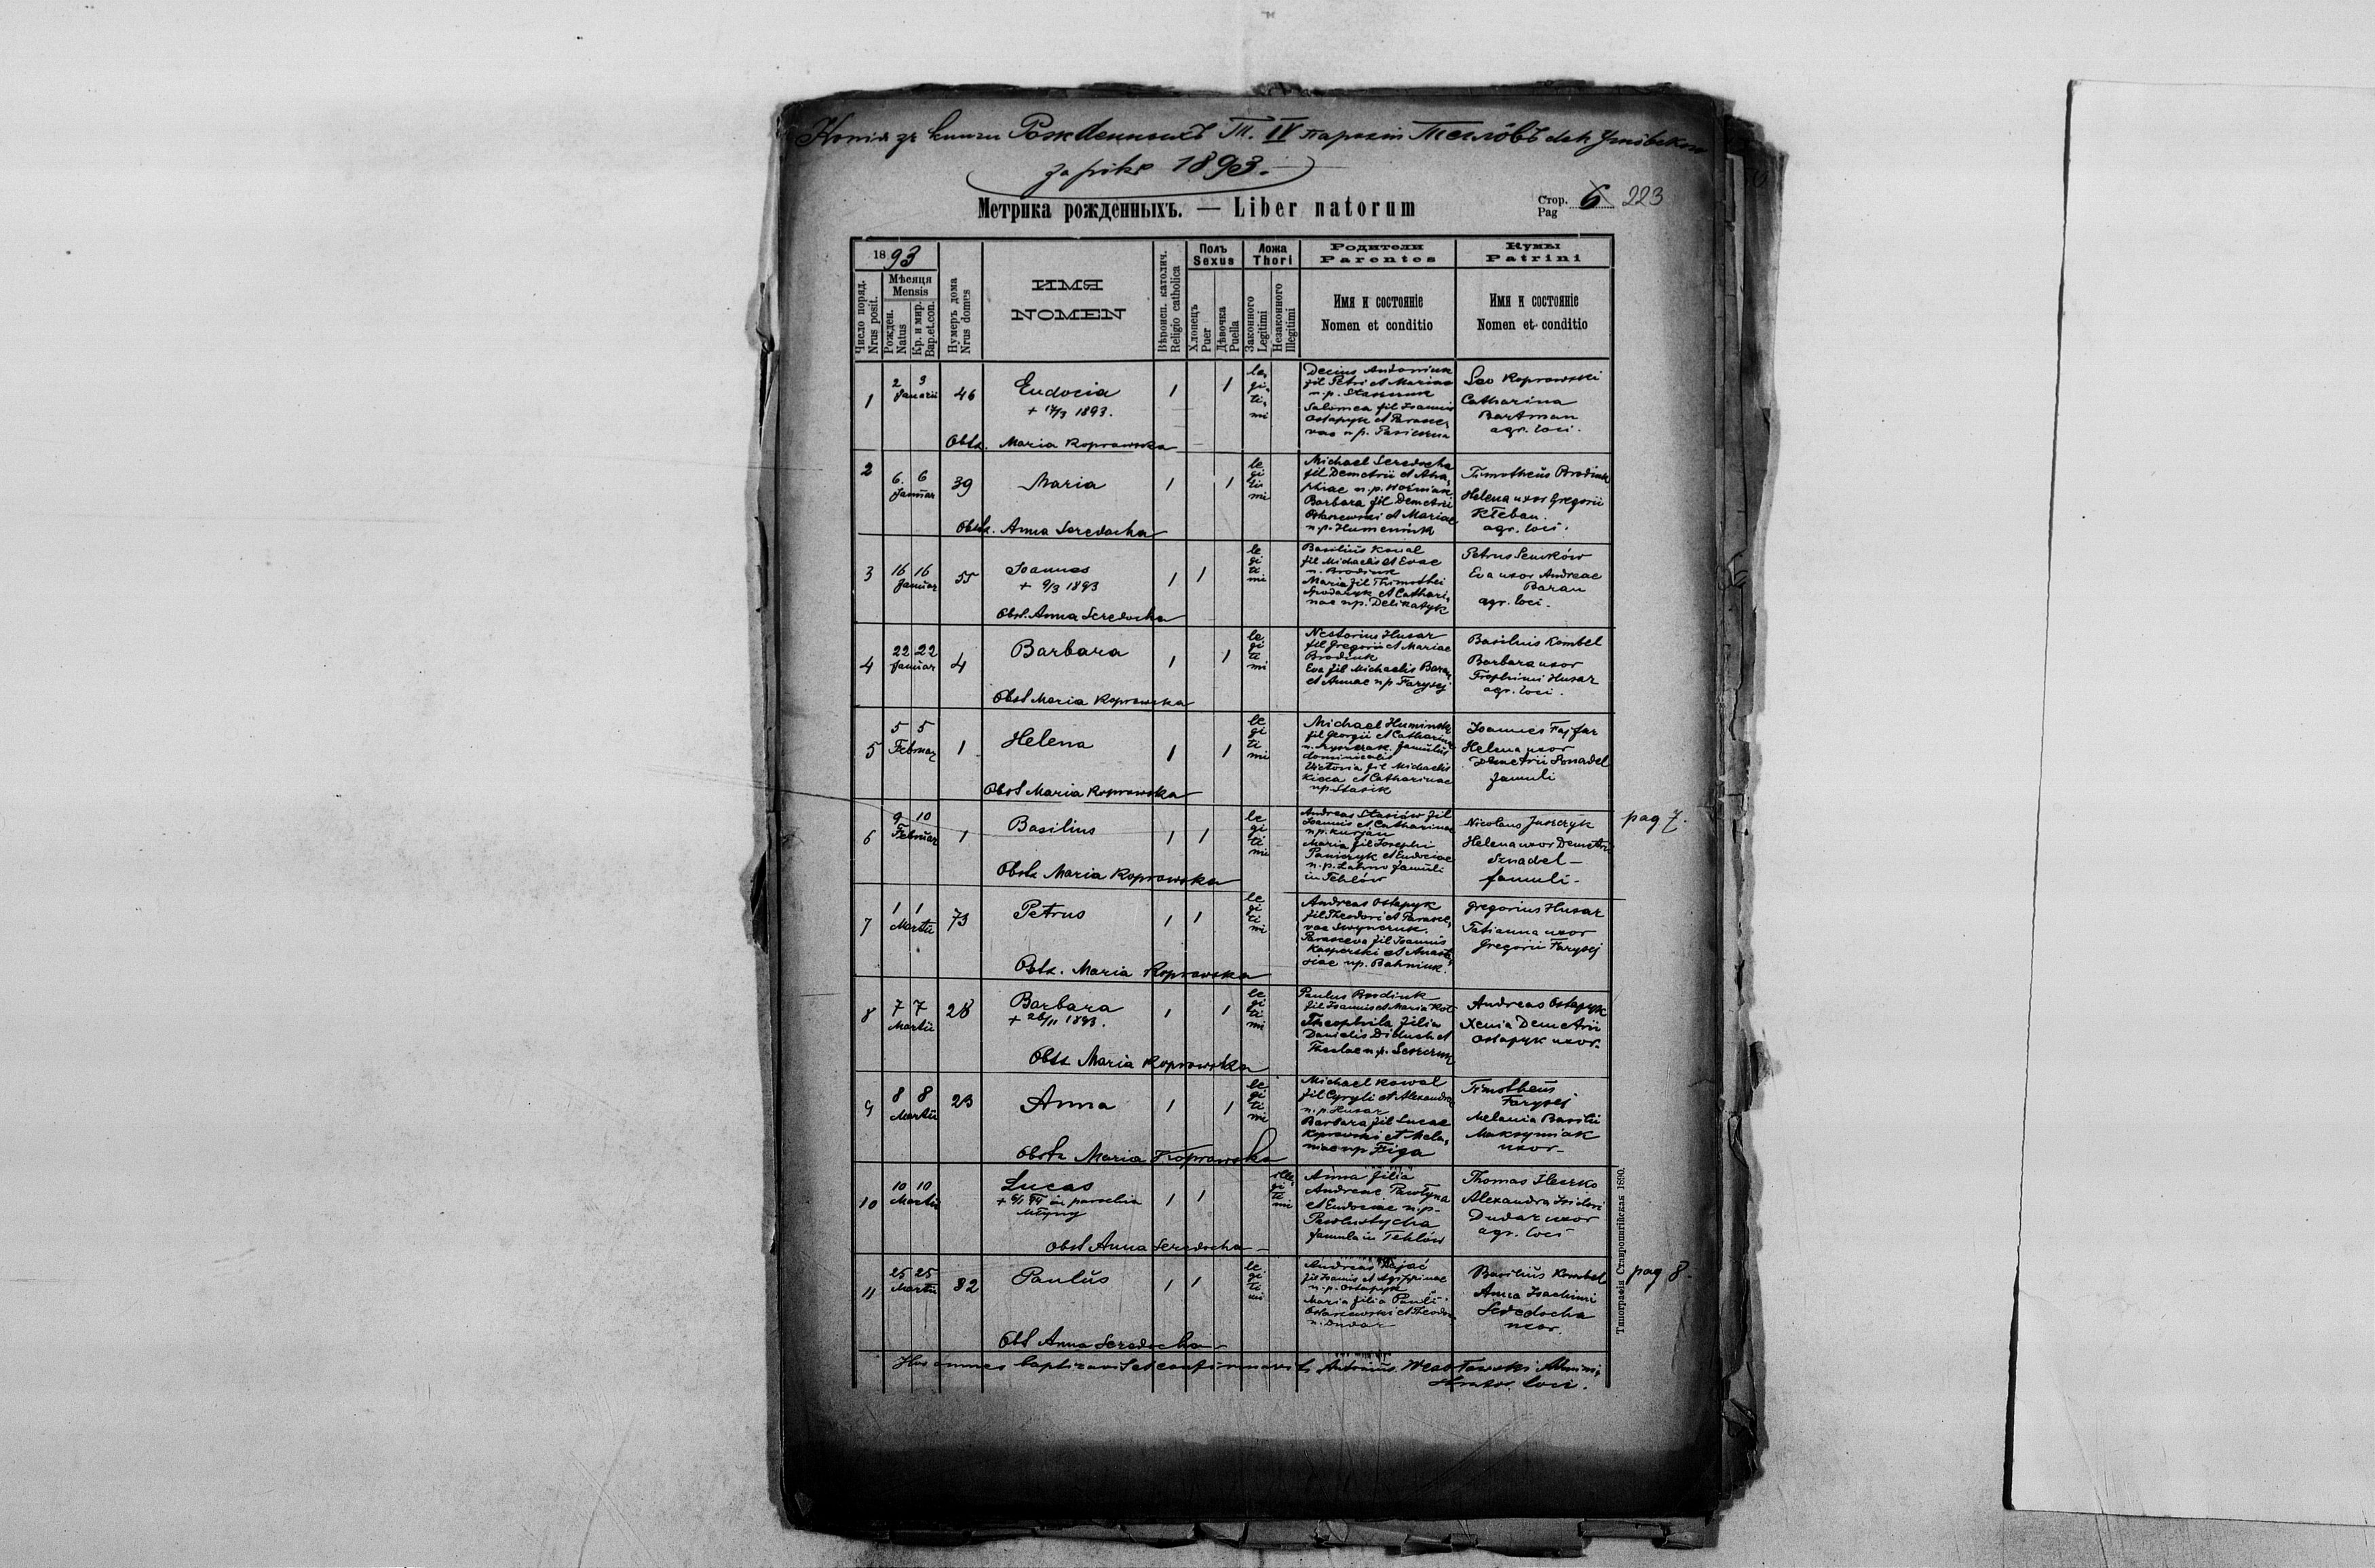 Копія зъ книги Рожденныхъ Т. IV парохіи Тегловъ dek.
за рікъ 1893.
Метрика рожденныхъ. — Liber natorum
Стор. Pag 6 223
1893
Мѣсяця Mensis
Число поряд. Nrus posit.
Рожден. Natus
Кр. и мир. Bap.et.con.
Нумеръ дома Nrus domus
ИМЯ
NOMEN
Вѣроисп. католич. Religio catholica
Полъ Sexus
Хлопець Puer
Дѣвочка Puella
Ложа Thori
Законного Legitimi
Незаконного Illegitimi
Родители Parentes
Имя и состояніе
Nomen et conditio
Кумы Patrini
Имя и состояніе
Nomen et conditio
1 2 3 Januarii 46 Eudocia 1 1 legitimi
+ 17/3 1893.
Antoniuk
fil Petri et Mariae
n.p. Staszuk
Salomea fil Joannis
Ostapyk et Parasce,
vae n.p.
Leo Koprowski
Catharina
Bartman
agr. loci.
Obst. Maria Koprowska
2 6. 6 Januar 39 Maria 1 1 legitimi
Michael Seredocha
fil Demetrii et Aha,
phiae n.p. Woźniak
Barbara fil Demetrii
Ostaszewski et Mariae
n.p. Humeniuk
Timotheus Brodiuk
Helena uxor Gregorii
Kłeban.
agr. loci.
Obst. Anna Seredocha
3 16 16 Januar 55 Joannes 1 1 legitimi
+ 9/3 1893
Basilius Kowal
fil Michaelis et Evae
n. Brodiuk
Maria fil Thimothei
et Cathari,
nae n.p. Delikatyk
Petrus Senków
Eva uxor Andreae
Baran
agr. loci.
Obst. Anna Seredocha
4 22 22 Januar 4 Barbara 1 1 legitimi
Nestorius Husar
fil Gregorii et Mariae
Brodiuk
Eva fil Michaelis Baran
et Annae n.p. Farysej
Basilius Kombel
Barbara uxor
Trophimi Husar
agr. loci.
Obst Maria Koprowska
5 5 5 Februar 1 Helena 1 1 legitimi
Michael Huminiuk
fil Georgii et Catharinae
famulus
dominicalis
Victoria fil Michaelis
Kicca et Catharinae
n.p. Stasik
Joannes Fajfar
Helena uxor
Demetrii Sznadel
famuli
Obst Maria Koprowska
6 9 10 Februar 1 Basilius 1 1 legitimi
Andreas Stasiów fil
Joannis et Catharinae
n.p. Kurjan
Maria fil Josephi
et Eudociae
n.p. Lahno famuli
in Tehlów
Nicolaus Juszczyk
Helena uxor Demetrii
Sznadel —
famuli —
pag 7.
Obst. Maria Koprowska
7 1 1 Martii 73 Petrus 1 1 legitimi
Andreas Ostapyk
fil Theodori et Parasce,
vae
Parasceva fil Joannis
Kasperski et Anasta,
siae n.p. Bahniuk.
Gregorius Husar
Tatianna uxor
Gregorii Farysej
Obst. Maria Koprowska
8 7 7 Martii 28 Barbara 1 1 legitimi
+ 26/11 1893.
Paulus Brodiuk
fil Joannis et Maria Kot
Theophila filia
Danielis et
Theclae n.p.
Andreas Ostapyk
Xenia Demetrii
Ostapyk uxor.
Obst Maria Koprowska
9 8 8 Martii 23 Anna 1 1 legitimi
Michael Kowal
fil Cyryli et Alexandrae
n.p. Husar
Barbara fil Lucae
Koprowski et Mela,
niae n.p. Figa
Timotheus
Farysej
Melania Basilii
Maksymiak
uxor —
Obst. Maria Koprowska
10 10 10 Martii Lucas 1 1 illegitimi
in parochia
Anna filia
Andreae Pawłyna
et Eudociae n.p.
famula in Tehlów
Thomas Ileczko
Alexandra Isidori
Dudar uxor
agr. loci
Obst Anna Seredocha —
11 25 25 Martii 32 Paulus 1 1 legitimi
Andreas Zajać
fil Joannis et Agrippinae
n.p. Ostapyk
Maria filia Pauli
Ostaszewski et Theodor
n. Dudar
Basilius Kombel
Anna Joachimi
Seredocha
uxor.
pag 8.
Obst Anna Seredocha —
Hos omnes baptizavit et confirmavit Antonius Admini,
strator loci.
Типографія Ставропигійская 1890.